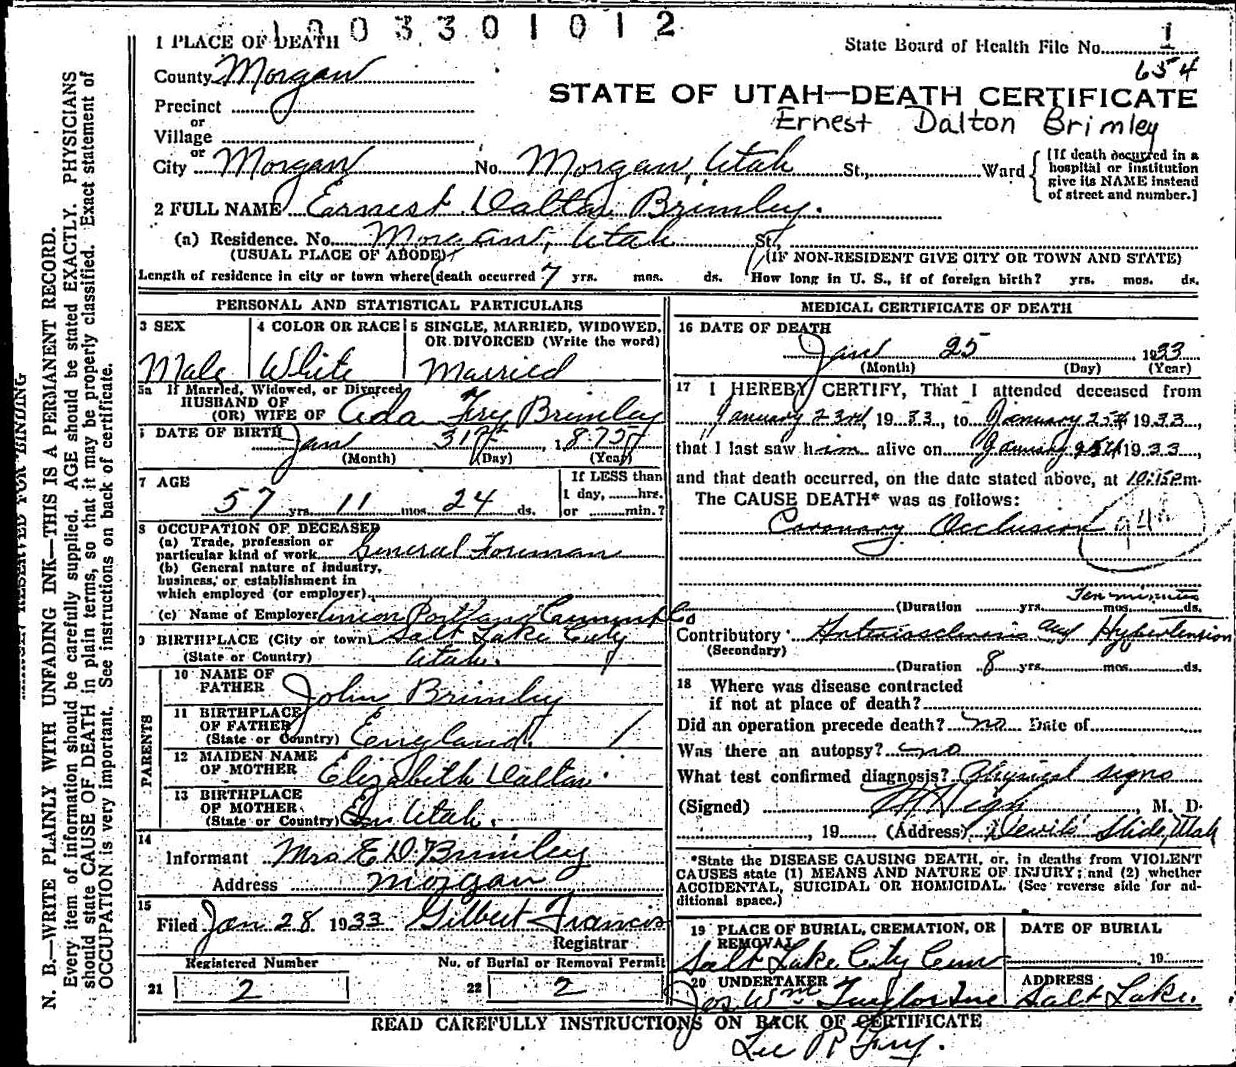 1 2 0 3 3 3 0 1 0 1 2
1 PLACE OF DEATH
State Board of Health File No. 1
654
County Morgan
STATE OF UTAH—DEATH CERTIFICATE
Precinct
Ernest Dalton Brimley
or
Village
or
City Morgan No. Morgan, Utah St., Ward
[If death occurred in a hospital or institution give its NAME instead of street and number.]
2 FULL NAME Ernest Dalton Brimley.
(a) Residence. No. Morgan, Utah St.,
(USUAL PLACE OF ABODE) (IF NON-RESIDENT GIVE CITY OR TOWN AND STATE)
Length of residence in city or town where death occurred 7 yrs. mos. ds. How long in U. S., if of foreign birth? yrs. mos. ds.
PERSONAL AND STATISTICAL PARTICULARS
3 SEX
Male
4 COLOR OR RACE
White
5 SINGLE, MARRIED, WIDOWED,
OR DIVORCED (Write the word)
Married
5a If Married, Widowed, or Divorced
HUSBAND OF
(OR) WIFE OF Ada Fry Brimley
6 DATE OF BIRTH Jan 31st, 1875
(Month) (Day) (Year)
7 AGE
57 yrs. 11 mos. 24 ds.
If LESS than
1 day, hrs.
or min.?
8 OCCUPATION OF DECEASED
(a) Trade, profession or
particular kind of work General Foreman
(b) General nature of industry,
business, or establishment in
which employed (or employer)
(c) Name of Employer Union Portland Cement Co
9 BIRTHPLACE (City or town) Salt Lake City
(State or Country) Utah.
PARENTS
10 NAME OF
FATHER John Brimley
11 BIRTHPLACE
OF FATHER
(State or Country) England.
12 MAIDEN NAME
OF MOTHER Elizabeth Dalton.
13 BIRTHPLACE
OF MOTHER
(State or Country) Utah.
14
Informant Mrs E D Brimley
Address Morgan
15
Filed Jan 28 1933 Gilbert Francis
Registrar
Registered Number
21 2
No. of Burial or Removal Permit
22 2
MEDICAL CERTIFICATE OF DEATH
16 DATE OF DEATH
Jan 25, 1933
(Month) (Day) (Year)
17 I HEREBY CERTIFY, That I attended deceased from
January 23rd, 1933, to January 25th 1933,
that I last saw him alive on January 25th 1933,
and that death occurred, on the date stated above, at 10:15 P.m.
The CAUSE DEATH* was as follows:
Coronary Occlusion 94
Ten minutes
(Duration yrs. mos. ds.
Contributory Arteriosclerosis and Hypertension
(Secondary)
(Duration 8 yrs. mos. ds.
18 Where was disease contracted
if not at place of death?
Did an operation precede death? no Date of
Was there an autopsy? no
What test confirmed diagnosis? Physical signs
(Signed) , M. D.
, 19 (Address) Devils Slide, Utah
*State the DISEASE CAUSING DEATH, or, in deaths from VIOLENT
CAUSES state (1) MEANS AND NATURE OF INJURY; and (2) whether
ACCIDENTAL, SUICIDAL OR HOMICIDAL. (See reverse side for ad-
ditional space.)
19 PLACE OF BURIAL, CREMATION, OR
REMOVAL
Salt Lake City Cem
DATE OF BURIAL
19
20 UNDERTAKER
Jos Wm Taylor Inc
ADDRESS
Salt Lake.
READ CAREFULLY INSTRUCTIONS ON BACK OF CERTIFICATE
Lee R Fry.
MARGIN RESERVED FOR BINDING
N. B.—WRITE PLAINLY WITH UNFADING INK—THIS IS A PERMANENT RECORD.
Every item of information should be carefully supplied. AGE should be stated EXACTLY. PHYSICIANS
should state CAUSE OF DEATH in plain terms, so that it may be properly classified. Exact statement of
OCCUPATION is very important. See instructions on back of certificate.